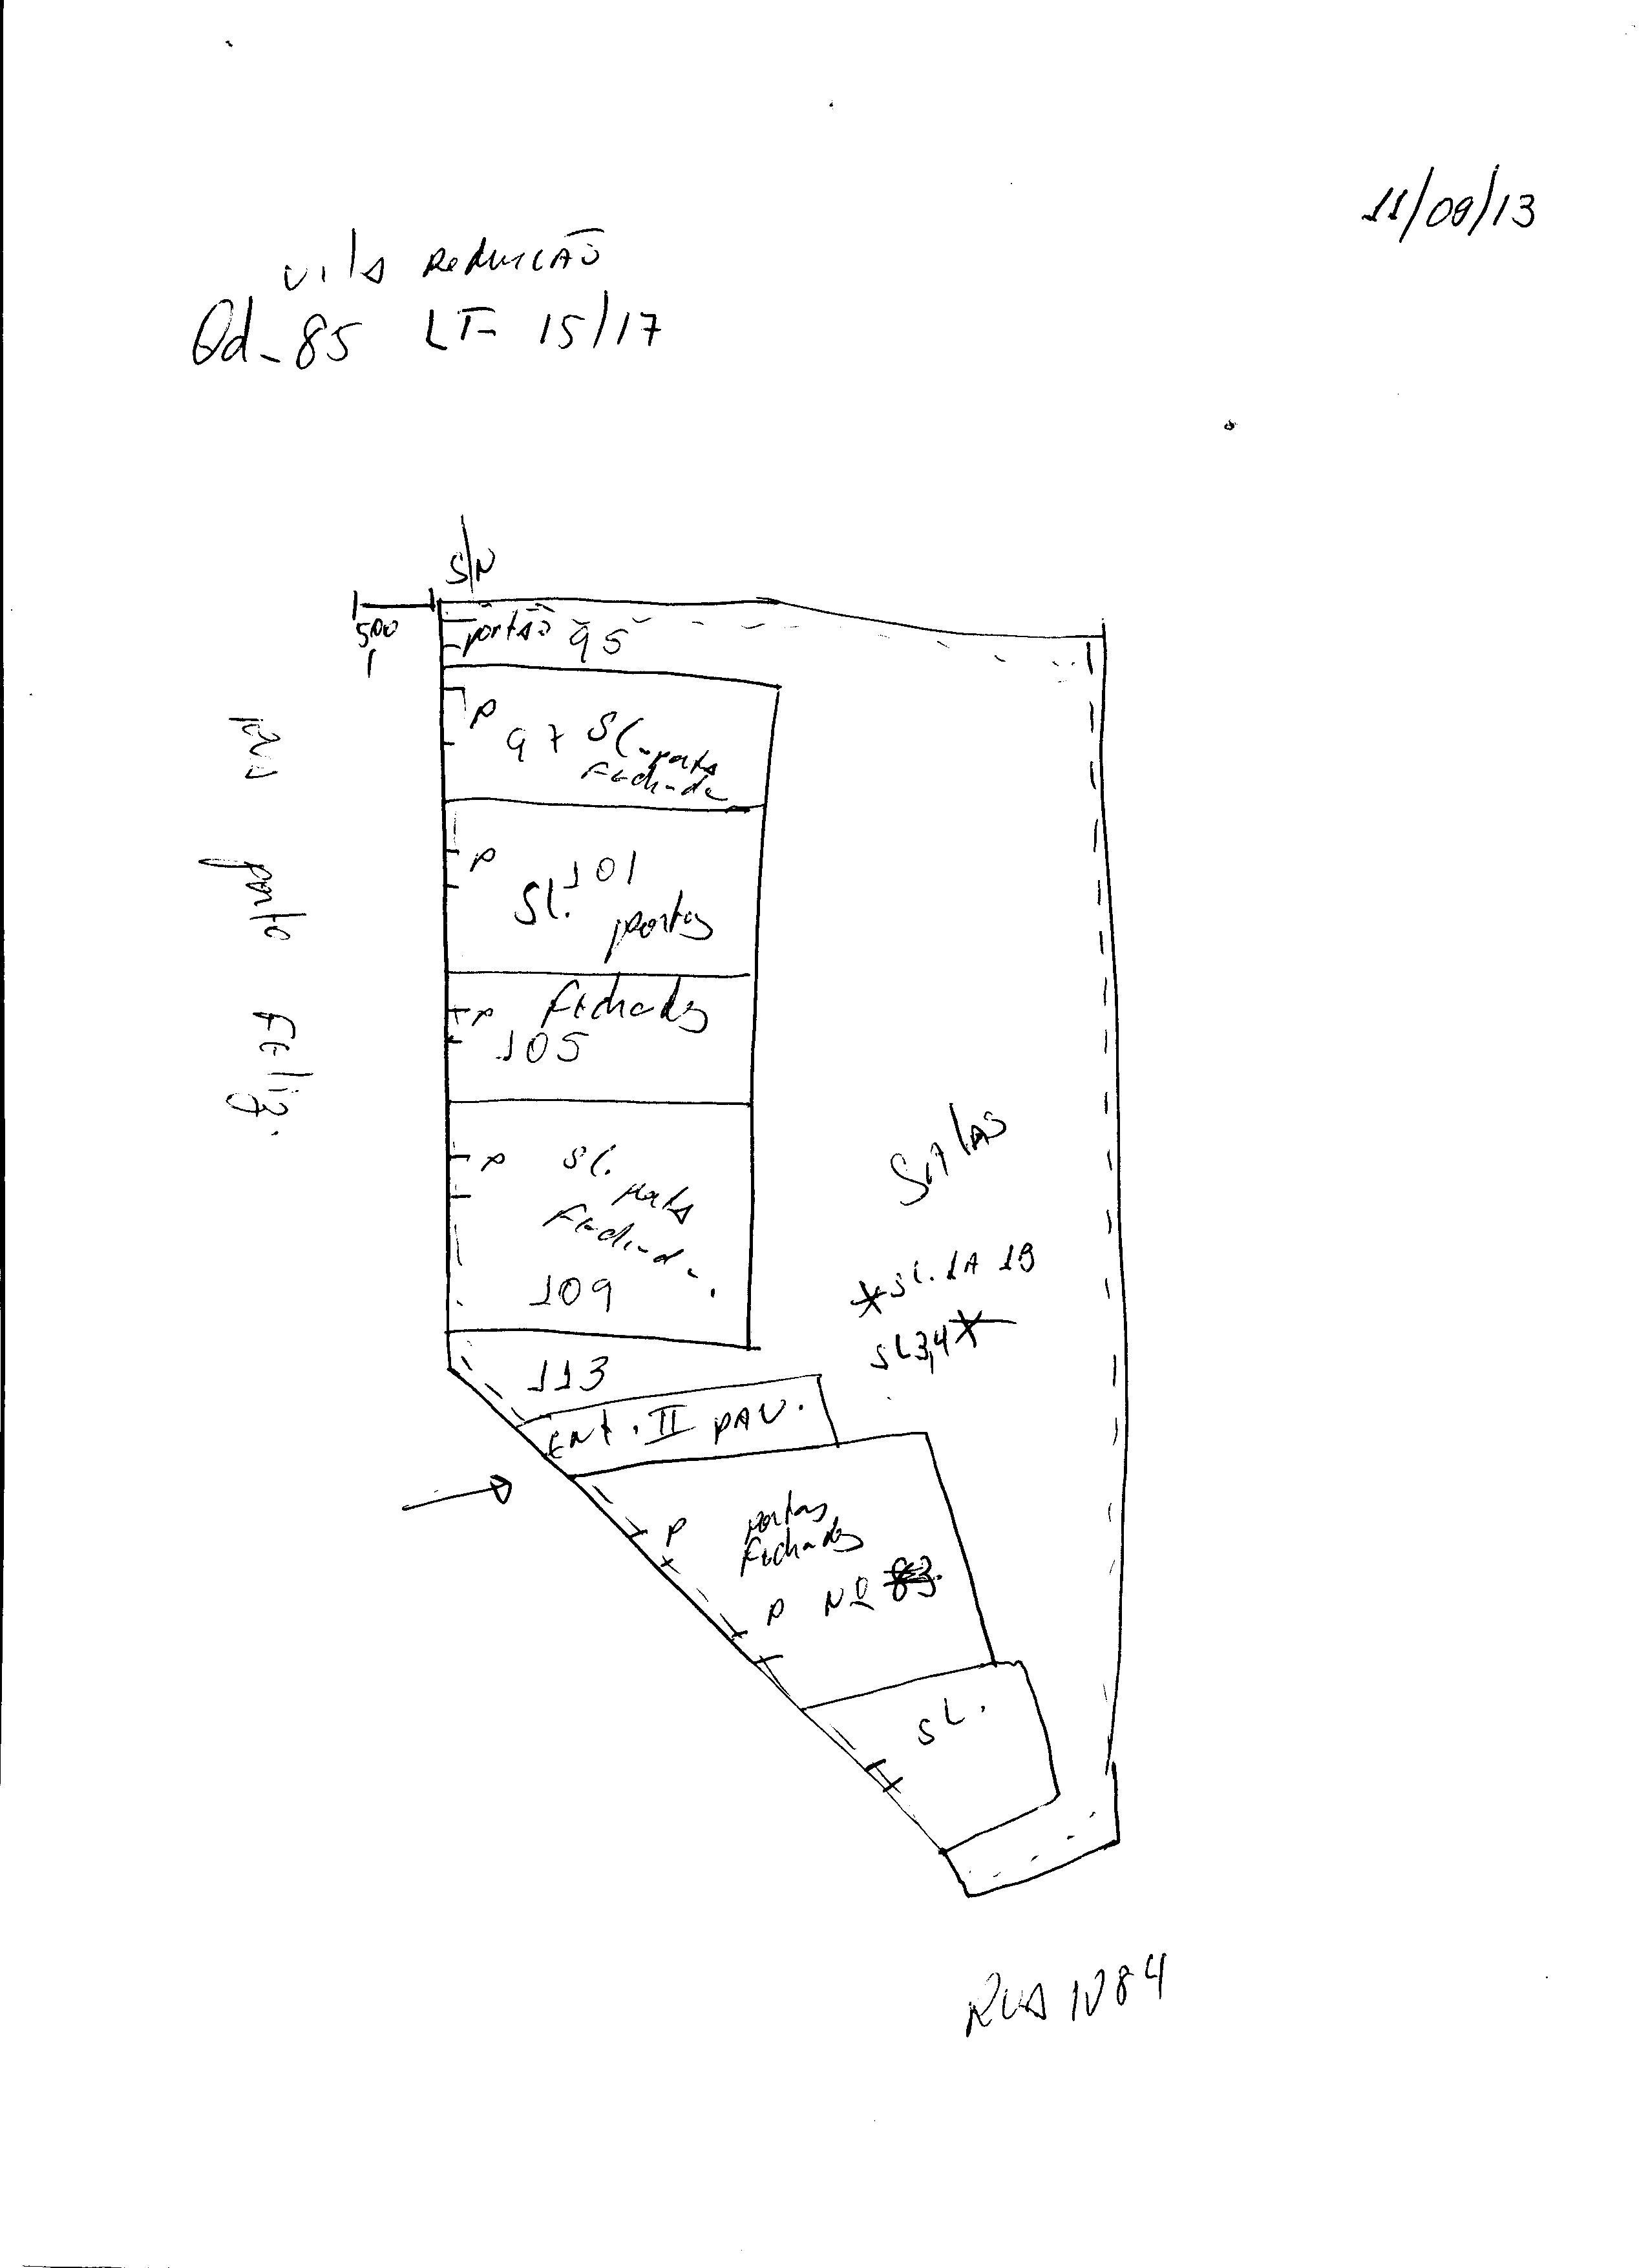 11/09/13
Vila Redenção
Qd_85 LT= 15/17
S/N
500
portão 95
P
97 SL-porta
Fechada
P
SL. 101
portas
Fechadas
P
105
P SL. porta
Fechada.
109
113
Ent. II PAV.
Rua porto Feliz.
SALAS
*SL. 1A 1B
SL3,4*
P portas
Fechadas
P Nº 83.
SL.
RUA 1084